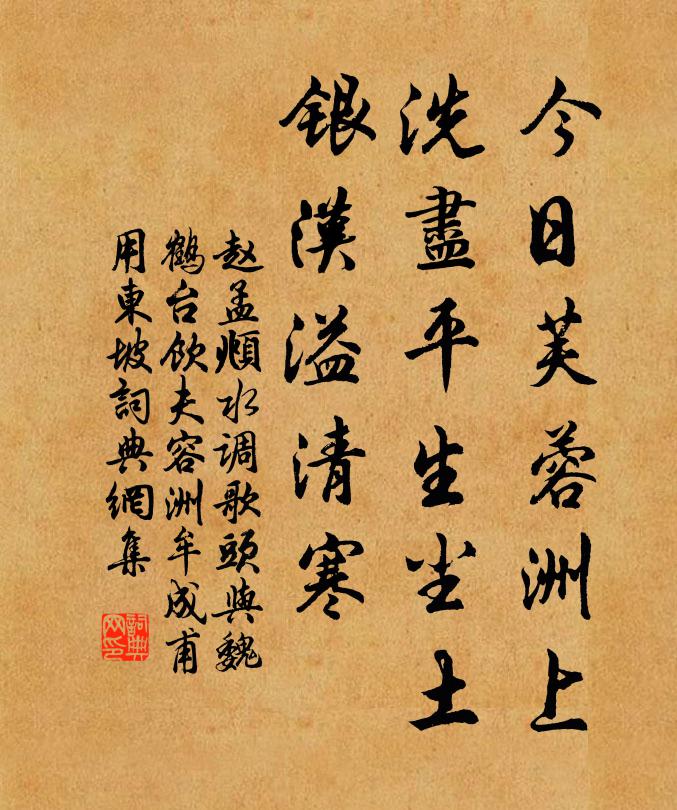 今日芙蓉洲上
洗盡平生尘土
銀漢溢清寒
赵孟頫水调歌頭與魏
鶴台饮夫容洲牟成甫
用東坡詞典網集
詞典网印